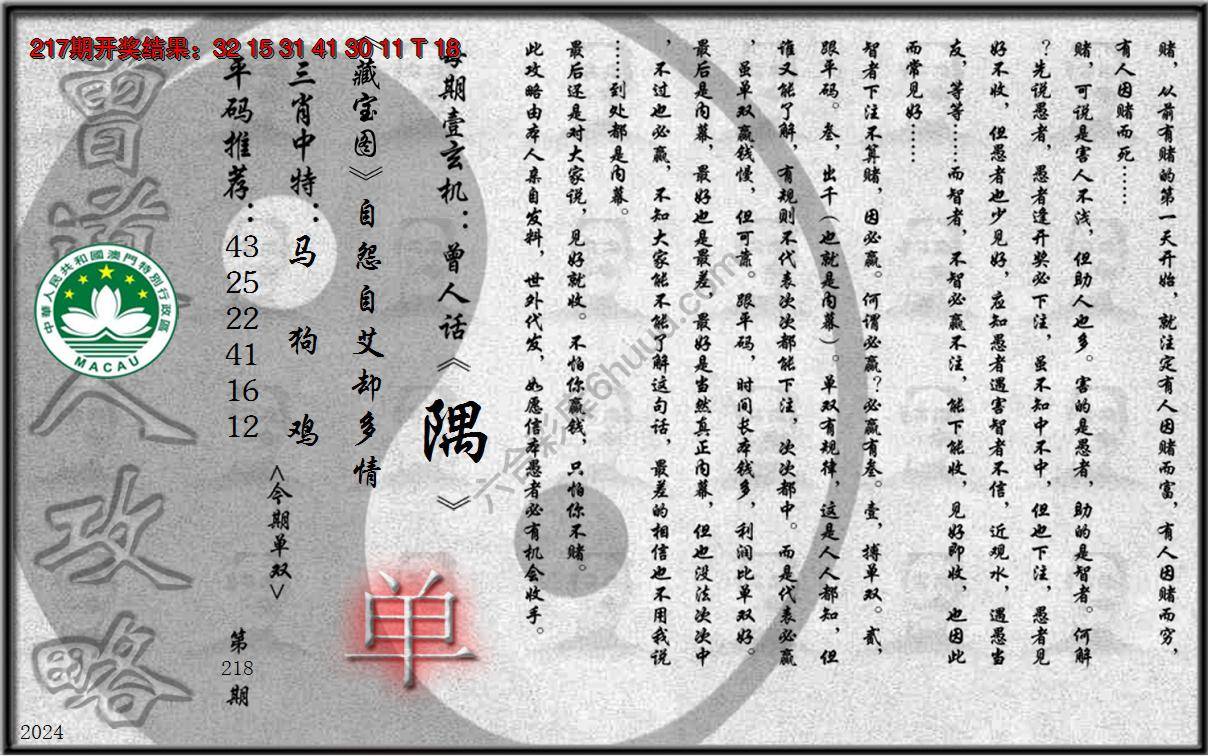 217期开奖结果：32 15 31 41 30 11 T 18
赌，从前有赌的第一天开始，就注定有人因赌而富，有人因赌而穷，
有人因赌而死……
赌，可说是害人不浅，但助人也多。害的是愚者，助的是智者。何解
？先说愚者，愚者逢开奖必下注，虽不知中不中，但也下注，愚者见
好不收，但愚者也少见好，应知愚者遇害智者不信，近观水，遇愚当
友，等等……而智者，不智必赢不注，能下能收，见好即收，也因此
而常见好……
智者下注不算赌，因必赢。何谓必赢？必赢有叁。壹，搏单双。贰，
跟平码。叁，出千（也就是内幕）。单双有规律，这是人人都知，但
谁又能了解，有规则不代表次次都能下注，次次都中。而是代表必赢
，虽单双赢钱慢，但可靠。跟平码，时间长本钱多，利润比单双好。
最后是内幕，最好也是最差，最好是当然真正内幕，但也没法次次中
，不过也必赢，不知大家能不能了解这句话，最差的相信也不用我说
……到处都是内幕。
最后还是对大家说，见好就收。不怕你赢钱，只怕你不赌。
此攻略由本人亲自发料，世外代发，如愿信本愚者必有机会收手。
每期壹玄机：曾人话《隅》
《藏宝图》自怨自艾却多情
三肖中特：马 狗 鸡
<今期单双>
单
平码推荐：
43
25
22
41
16
12
第
218
期
曾道人攻略
中華人民共和國澳門特別行政區
MACAU
2024